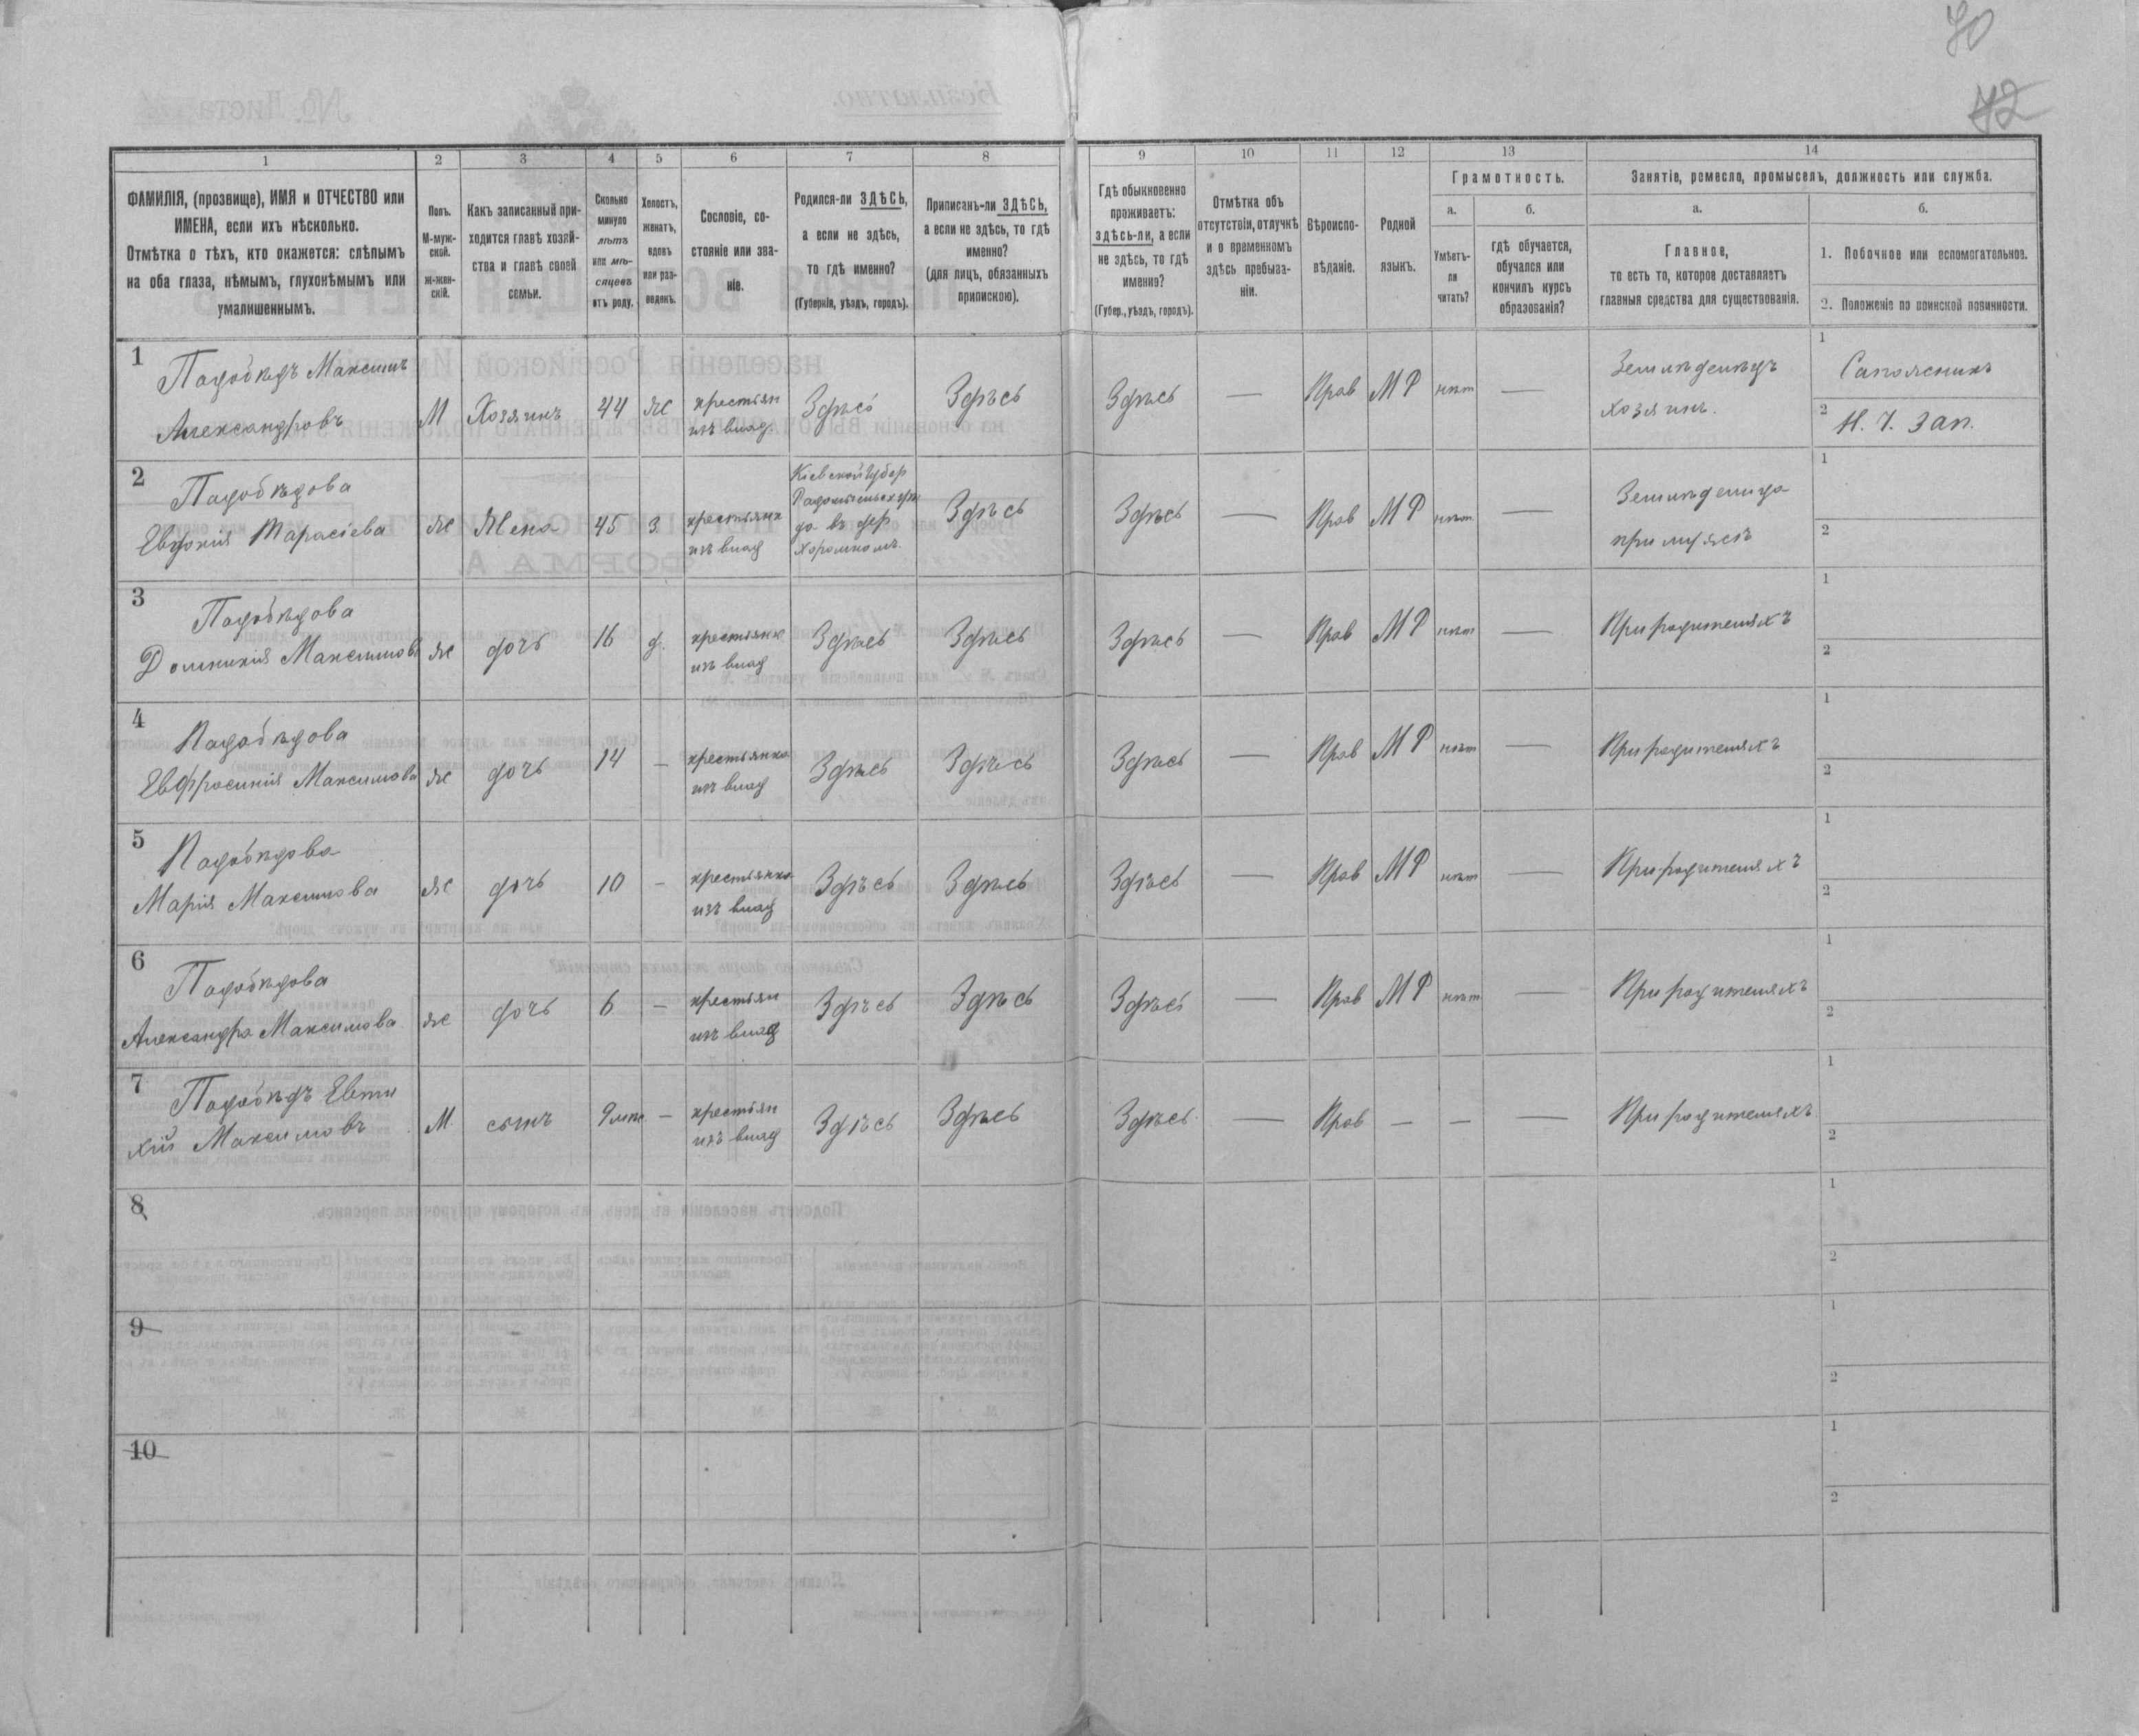 70
72
1
2
3
4
5
6
7
8
9
10
11
12
13
14
ФАМИЛІЯ, (прозвище), ИМЯ и ОТЧЕСТВО или
ИМЕНА, если ихъ нѣсколько.
Отмѣтка о тѣхъ, кто окажется: слѣпымъ
на оба глаза, нѣмымъ, глухонѣмымъ или
умалишеннымъ.
Полъ.
М-муж-
ской.
ж-жен-
скій.
Какъ записанный при-
ходится главѣ хозяй-
ства и главѣ своей
семьи.
Сколько
минуло
лѣтъ
или мѣ-
сяцевъ
отъ роду.
Холостъ,
женатъ,
вдовъ
или раз-
веденъ.
Сословіе, со-
стояніе или зва-
ніе.
Родился-ли ЗДѢСЬ,
а если не здѣсь,
то гдѣ именно?
(Губернія, уѣздъ, городъ).
Приписанъ-ли ЗДѢСЬ,
а если не здѣсь, то гдѣ
именно?
(для лицъ, обязанныхъ
припискою).
Гдѣ обыкновенно
проживаетъ:
здѣсь-ли, а если
не здѣсь, то гдѣ
именно?
(Губер., уѣздъ, городъ).
Отмѣтка объ
отсутствіи, отлучкѣ
и о временномъ
здѣсь пребыва-
ніи.
Вѣроиспо-
вѣданіе.
Родной
языкъ.
Грамотность.
а.
Умѣетъ-
ли
читать?
б.
гдѣ обучается,
обучался или
кончилъ курсъ
образованія?
Занятіе, ремесло, промыселъ, должность или служба.
а.
Главное,
то есть то, которое доставляетъ
главныя средства для существованія.
б.
1. Побочное или вспомогательное.
2. Положеніе по воинской повинности.
1
Падобѣдъ Максимъ
Александровъ
М
Хозяинъ
44
ж
крестьян
изъ влад.
Здѣсь
Здѣсь
Здѣсь
—
Прав
М Р
нѣт
—
Земледѣлецъ
хозяинъ.
1
Сапожникъ
2
Н. Ч. Зап.
2
Падобѣдова
Евдокія Тарасіева
ж
Жена
45
З
крестьянк
изъ влад
Кіевской Губер
Радомысльск уѣз
да въ дер
Здѣсь
Здѣсь
—
Прав
М Р
нѣт
—
Земледѣлица
при мужѣ
1
2
3
Падобѣдова
Домникія Максимова
ж
дочь
16
д.
крестьянк
изъ влад
Здѣсь
Здѣсь
Здѣсь
—
Прав
М Р
нѣт
—
При родителяхъ
1
2
4
Падобѣдова
Евфросинія Максимова
ж
дочь
14
—
крестьянка
изъ влад
Здѣсь
Здѣсь
Здѣсь
—
Прав
М Р
нѣт
—
При родителяхъ
1
2
5
Падобѣдова
Марія Максимова
ж
дочь
10
—
крестьянка
изъ влад
Здѣсь
Здѣсь
Здѣсь
—
Прав
М Р
нѣт
—
При родителяхъ
1
2
6
Падобѣдова
Александра Максимова
ж
дочь
6
—
крестьян
изъ влад
Здѣсь
Здѣсь
Здѣсь
—
Прав
М Р
нѣт
—
При родителяхъ
1
2
7
Падобѣдъ Евти
хій Максимовъ
М
сынъ
9 мѣс
—
крестьян
изъ влад
Здѣсь
Здѣсь
Здѣсь
—
Прав
—
—
—
При родителяхъ
1
2
8
1
2
9
1
2
10
1
2